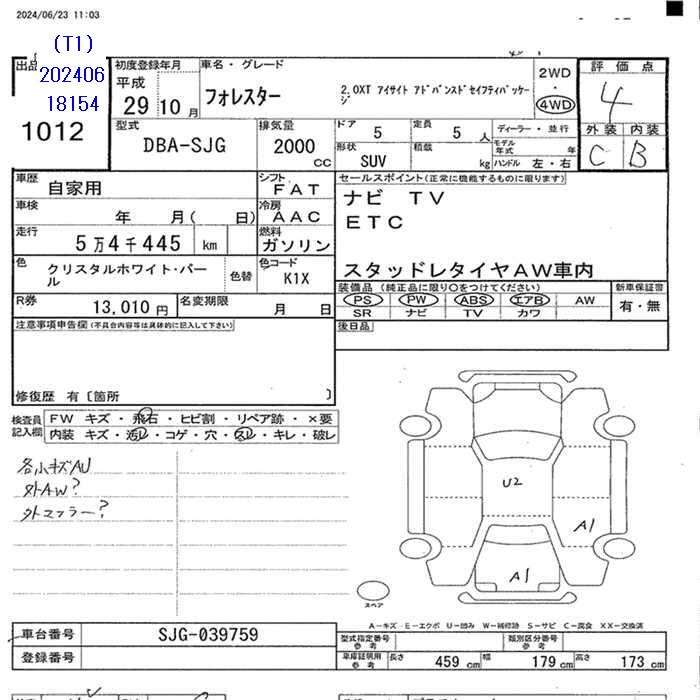 2024/06/23 11:03
出品
(T1)
202406
18154
1012
初度登録年月
平成
29 10 月
車名・グレード
フォレスター
2.0XT アイサイト アドバンスドセイフティパッケージ
2WD
・
4WD
評価点
4
外装 内装
C B
型式
DBA-SJG
排気量
2000
CC
ドア
5
定員
5 人
ディーラー・並行
形状
SUV
積載
kg
モデル年式 年
ハンドル 左・右
車歴
自家用
シフト
FAT
車検
年 月( 日)
冷房
AAC
走行
5万4千445 km
燃料
ガソリン
色
クリスタルホワイト・パール
色替
色コード
K1X
R券
13,010 円
名変期限
月 日
セールスポイント(正常に機能するものに限ります)
ナビ TV
ETC
スタッドレタイヤAW車内
装備品 (純正品に限り○をつけてください)
PS PW ABS エアB AW
SR ナビ TV カワ
新車保証書
有・無
後日品
注意事項申告欄(不具合内容等は具体的に記入して下さい)
修復歴 有〔箇所 〕
検査員
記入欄
FW キズ・飛石・ヒビ割・リペア跡・×要
内装 キズ・汚レ・コゲ・穴・スレ・キレ・破レ
各小キズAU
外AW?
外マフラー?
U2
A1
A1
スペア
A-キズ E-エクボ U-凹み W-補修跡 S-サビ C-腐食 XX-交換済
車台番号
SJG-039759
登録番号
型式指定番号
参考
類別区分番号
参考
車庫証明用
参考
長さ 459 cm 幅 179 cm 高さ 173 cm